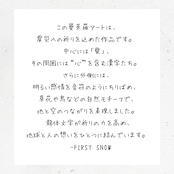 この曼荼羅アートは、
摩訶への祈りを込めた作品です。
中心には「愛」、
その周囲には“心”を含む漢字たち。
さらに外側には、
明るい感情を音符のようにちりばめ、
草花や鳥などの自然モチーフで、
地と空のつながりを表現しました。
龍体文字が祈りの力を高め、
地球と人の想いをひとつに結んでいます。
-FIRST SNOW